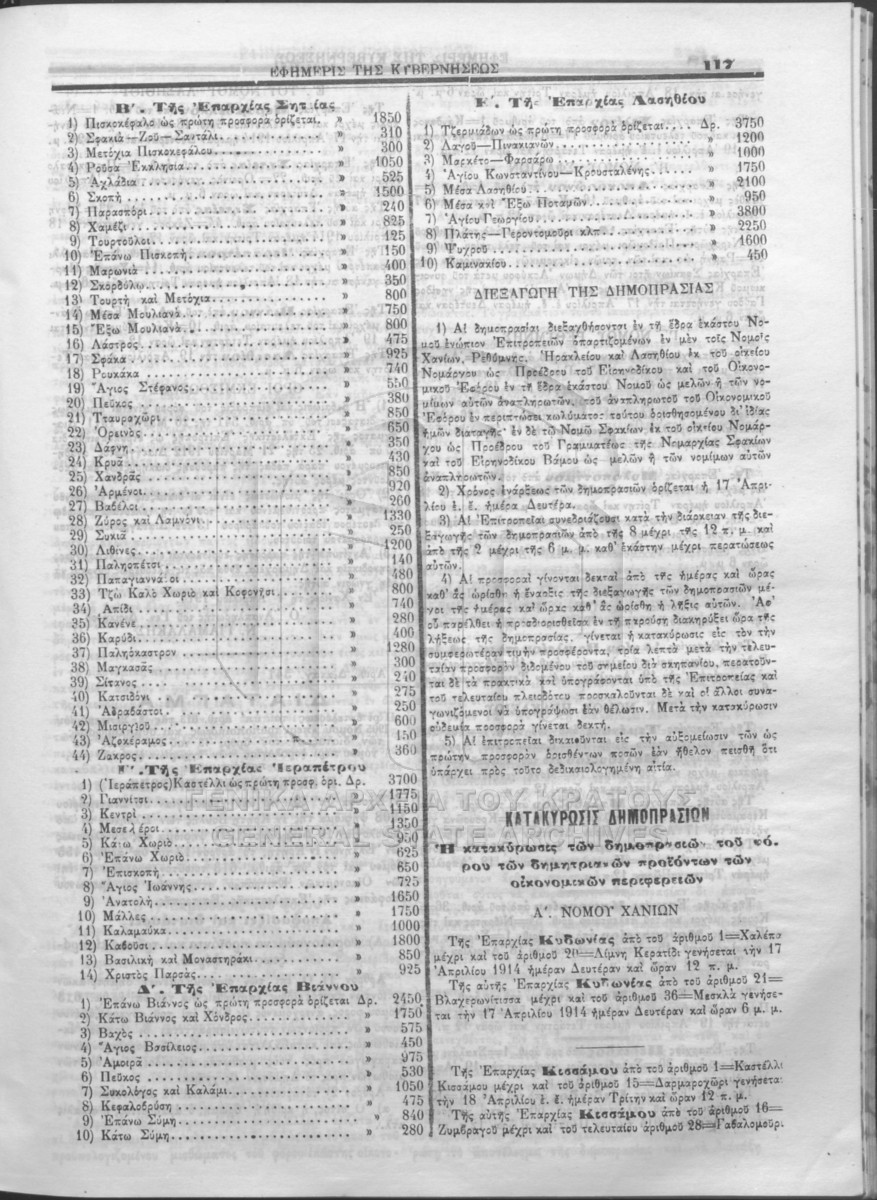 ΕΦΗΜΕΡΙΣ ΤΗΣ ΚΥΒΕΡΝΗΣΕΩΣ
117
Β′. Τῆς Ἐπαρχίας Σητείας
1) Πισκοκέφαλο ὡς πρώτη προσφορὰ ὁρίζεται. » 1850
2) Σφακιὰ—Ζοῦ—Σαντάλι » 310
3) Μετόχια Πισκοκεφάλου » 300
4) Ροῦσα Ἐκκλησία » 1050
5) Ἀχλάδια » 525
6) Σκοπὴ » 1500
7) Παρασπόρι » 240
8) Χαμέζι » 825
9) Τουρτοῦλοι » 125
10) Ἐπάνω Πισκοπὴ » 150
11) Μαρωνιὰ » 400
12) Σκορδύλω » 350
13) Τουρτὴ καὶ Μετόχια » 800
14) Μέσα Μουλιανὰ » 750
15) Ἔξω Μουλιανὰ » 800
16) Λάστρος » 475
17) Σφάκα » 925
18) Ρουκάκα » 740
19) Ἅγιος Στέφανος » 550
20) Πεῦκος » 380
21) Τταυροχῶρι » 850
22) Ὀρεινὸς » 650
23) Δάφνη » 350
24) Κρυὰ » 430
25) Χανδρᾶς » 850
26) Ἀρμένοι » 920
27) Βαβέλοι » 260
28) Ζῦρος καὶ Λαμνόνι » 1330
29) Συκιὰ » 250
30) Λιθίνες » 1200
31) Παληοπέτσι » 140
32) Παπαγιαννάδοι » 480
33) Τζὼ Καλὸ Χωριὸ καὶ Κοφονῆσι » 800
34) Ἀπίδι » 740
35) Κανένε » 280
36) Καρύδι » 400
37) Παληόκαστρον » 1280
38) Μαγκασᾶς » 300
39) Σίτανος » 240
40) Κατσιδόνι » 275
41) Ἀδραβάστοι » 250
42) Μισιργιοῦ » 600
43) Ἀζοκέραμος » 150
44) Ζάκρος » 360
Γ′. Τῆς Ἐπαρχίας Ἱεραπέτρου
1) (Ἱεράπετρος) Καστέλλι ὡς πρώτη προσφ. ὁρι. Δρ. 3700
2) Γιαννίτσι » 1775
3) Κεντρὶ » 1150
4) Μεσελέροι » 1350
5) Κάτω Χωριὸ » 950
6) Ἐπάνω Χωριὸ » 625
7) Ἐπισκοπὴ » 650
8) Ἅγιος Ἰωάννης » 725
9) Ἀνατολὴ » 1650
10) Μάλλες » 1750
11) Καλαμαύκα » 1000
12) Καβοῦσι » 1800
13) Βασιλικὴ καὶ Μοναστηράκι » 850
14) Χριστὸς Παρσὰς » 925
Δ′. Τῆς Ἐπαρχίας Βιάννου
1) Ἐπάνω Βιάννος ὡς πρώτη προσφορὰ ὁρίζεται Δρ. 2450
2) Κάτω Βιάννος καὶ Χόνδρος » 1750
3) Βαχὸς » 575
4) Ἅγιος Βασίλειος » 450
5) Ἀμοιρᾶ » 975
6) Πεῦκος » 530
7) Συκολόγος καὶ Καλάμι » 1050
8) Κεφαλοβρύση » 475
9) Ἐπάνω Σύμη » 840
10) Κάτω Σύμη » 280
Ε′. Τῆς Ἐπαρχίας Λασηθίου
1) Τζερμιάδων ὡς πρώτη προσφορὰ ὁρίζεται Δρ. 3750
2) Λαγοῦ—Πινακιανῶν » 1200
3) Μαρκέτο—Φαρσάρω » 1000
4) Ἁγίου Κωνσταντίνου—Κρουσταλένης » 1750
5) Μέσα Λασηθίου » 2100
6) Μέσα καὶ Ἔξω Ποταμῶν » 950
7) Ἁγίου Γεωργίου » 3800
8) Πλάτης—Γεροντομούρι κλπ » 2250
9) Ψυχροῦ » 1600
10) Καμινακίου » 450
ΔΙΕΞΑΓΩΓΗ ΤΗΣ ΔΗΜΟΠΡΑΣΙΑΣ
1) Αἱ δημοπρασίαι διεξαχθήσονται ἐν τῇ ἕδρᾳ ἑκάστου Νο-
μοῦ ἐνώπιον Ἐπιτροπειῶν ἀπαρτιζομένων ἐν μὲν τοῖς Νομοῖς
Χανίων, Ρεθύμνης, Ἡρακλείου καὶ Λασηθίου ἐκ τοῦ οἰκείου
Νομάρχου ὡς Προέδρου τοῦ Εἰρηνοδίκου καὶ τοῦ Οἰκονο-
μικοῦ Ἐφόρου ἐν τῇ ἕδρᾳ ἑκάστου Νομοῦ ὡς μελῶν ἢ τῶν νο-
μίμων αὐτῶν ἀναπληρωτῶν, τοῦ ἀναπληρωτοῦ τοῦ Οἰκονομικοῦ
Ἐφόρου ἐν περιπτώσει κωλύματος τούτου ὁρισθησομένου δι' ἰδίας
ἡμῶν διαταγῆς· ἐν δὲ τῷ Νομῷ Σφακίων ἐκ τοῦ οἰκείου Νομάρ-
χου ὡς Προέδρου τοῦ Γραμματέως τῆς Νομαρχίας Σφακίων
καὶ τοῦ Εἰρηνοδίκου Βάμου ὡς μελῶν ἢ τῶν νομίμων αὐτῶν
ἀναπληρωτῶν.
2) Χρόνος ἐνάρξεως τῶν δημοπρασιῶν ὁρίζεται ἡ 17 Ἀπρι-
λίου ἐ. ἔ. ἡμέρα Δευτέρα.
3) Αἱ Ἐπιτροπεῖαι συνεδριάζουσι κατὰ τὴν διάρκειαν τῆς διε-
ξαγωγῆς τῶν δημοπρασιῶν ἀπὸ τῆς 8 μέχρι τῆς 12 π. μ. καὶ
ἀπὸ τῆς 2 μέχρι τῆς 6 μ. μ. καθ' ἑκάστην μέχρι περατώσεως
αὐτῶν.
4) Αἱ προσφοραὶ γίνονται δεκταὶ ἀπὸ τῆς ἡμέρας καὶ ὥρας
καθ' ἃς ὡρίσθη ἡ ἔναρξις τῆς διεξαγωγῆς τῶν δημοπρασιῶν μέ-
χρι τῆς ἡμέρας καὶ ὥρας καθ' ἃς ὡρίσθη ἡ λῆξις αὐτῶν. Ἀφ'
οὗ παρέλθει ἡ προσδιορισθεῖσα ἐν τῇ παρούσῃ διακηρύξει ὥρα τῆς
λήξεως τῆς δημοπρασίας, γίνεται ἡ κατακύρωσις εἰς τὸν τὴν
συμφερωτέραν τιμὴν προσφέροντα, τρία λεπτὰ μετὰ τὴν τελευ-
ταίαν προσφορὰν διδομένου τοῦ σημείου διὰ σκηπανίου, περατοῦν-
ται δὲ τὰ πρακτικὰ καὶ ὑπογράφονται ὑπὸ τῆς Ἐπιτροπείας καὶ
τοῦ τελευταίου πλειοδότου προσκαλοῦνται δὲ καὶ οἱ ἄλλοι συνα-
γωνιζόμενοι νὰ ὑπογράψωσι ἐὰν θέλωσιν. Μετὰ τὴν κατακύρωσιν
οὐδεμία προσφορὰ γίνεται δεκτή.
5) Αἱ ἐπιτροπεῖαι δικαιοῦνται εἰς τὴν αὐξομείωσιν τῶν ὡς
πρώτην προσφορὰν ὁρισθέντων ποσῶν ἐὰν ἤθελον πεισθῆ ὅτι
ὑπάρχει πρὸς τοῦτο δεδικαιολογημένη αἰτία.
ΓΕΝΙΚΑ ΑΡΧΕΙΑ ΤΟΥ ΚΡΑΤΟΥΣ
GENERAL STATE ARCHIVES
ΚΑΤΑΚΥΡΩΣΙΣ ΔΗΜΟΠΡΑΣΙΩΝ
Ἡ κατακύρωσις τῶν δημοπρασιῶν τοῦ φό-
ρου τῶν δημητριακῶν προϊόντων τῶν
οἰκονομικῶν περιφερειῶν
Α′. ΝΟΜΟΥ ΧΑΝΙΩΝ
Τῆς Ἐπαρχίας Κυδωνίας ἀπὸ τοῦ ἀριθμοῦ 1=Χαλέπα
μέχρι καὶ τοῦ ἀριθμοῦ 20=Λίμνη Κερατίδι γενήσεται τὴν 17
Ἀπριλίου 1914 ἡμέραν Δευτέραν καὶ ὥραν 12 π. μ.
Τῆς αὐτῆς Ἐπαρχίας Κυδωνίας ἀπὸ τοῦ ἀριθμοῦ 21=
Βλαχερωνίτισσα μέχρι καὶ τοῦ ἀριθμοῦ 36=Μεσκλὰ γενήσε-
ται τὴν 17 Ἀπριλίου 1914 ἡμέραν Δευτέραν καὶ ὥραν 6 μ. μ.
Τῆς Ἐπαρχίας Κισσάμου ἀπὸ τοῦ ἀριθμοῦ 1=Καστέλλι
Κισσάμου μέχρι καὶ τοῦ ἀριθμοῦ 15=Δαρμαροχῶρι γενήσεται
τὴν 18 Ἀπριλίου ἐ. ἔ. ἡμέραν Τρίτην καὶ ὥραν 12 π. μ.
Τῆς αὐτῆς Ἐπαρχίας Κισσάμου ἀπὸ τοῦ ἀριθμοῦ 16=
Ζυμβραγοῦ μέχρι καὶ τοῦ τελευταίου ἀριθμοῦ 28=Γαβαλομοῦρι